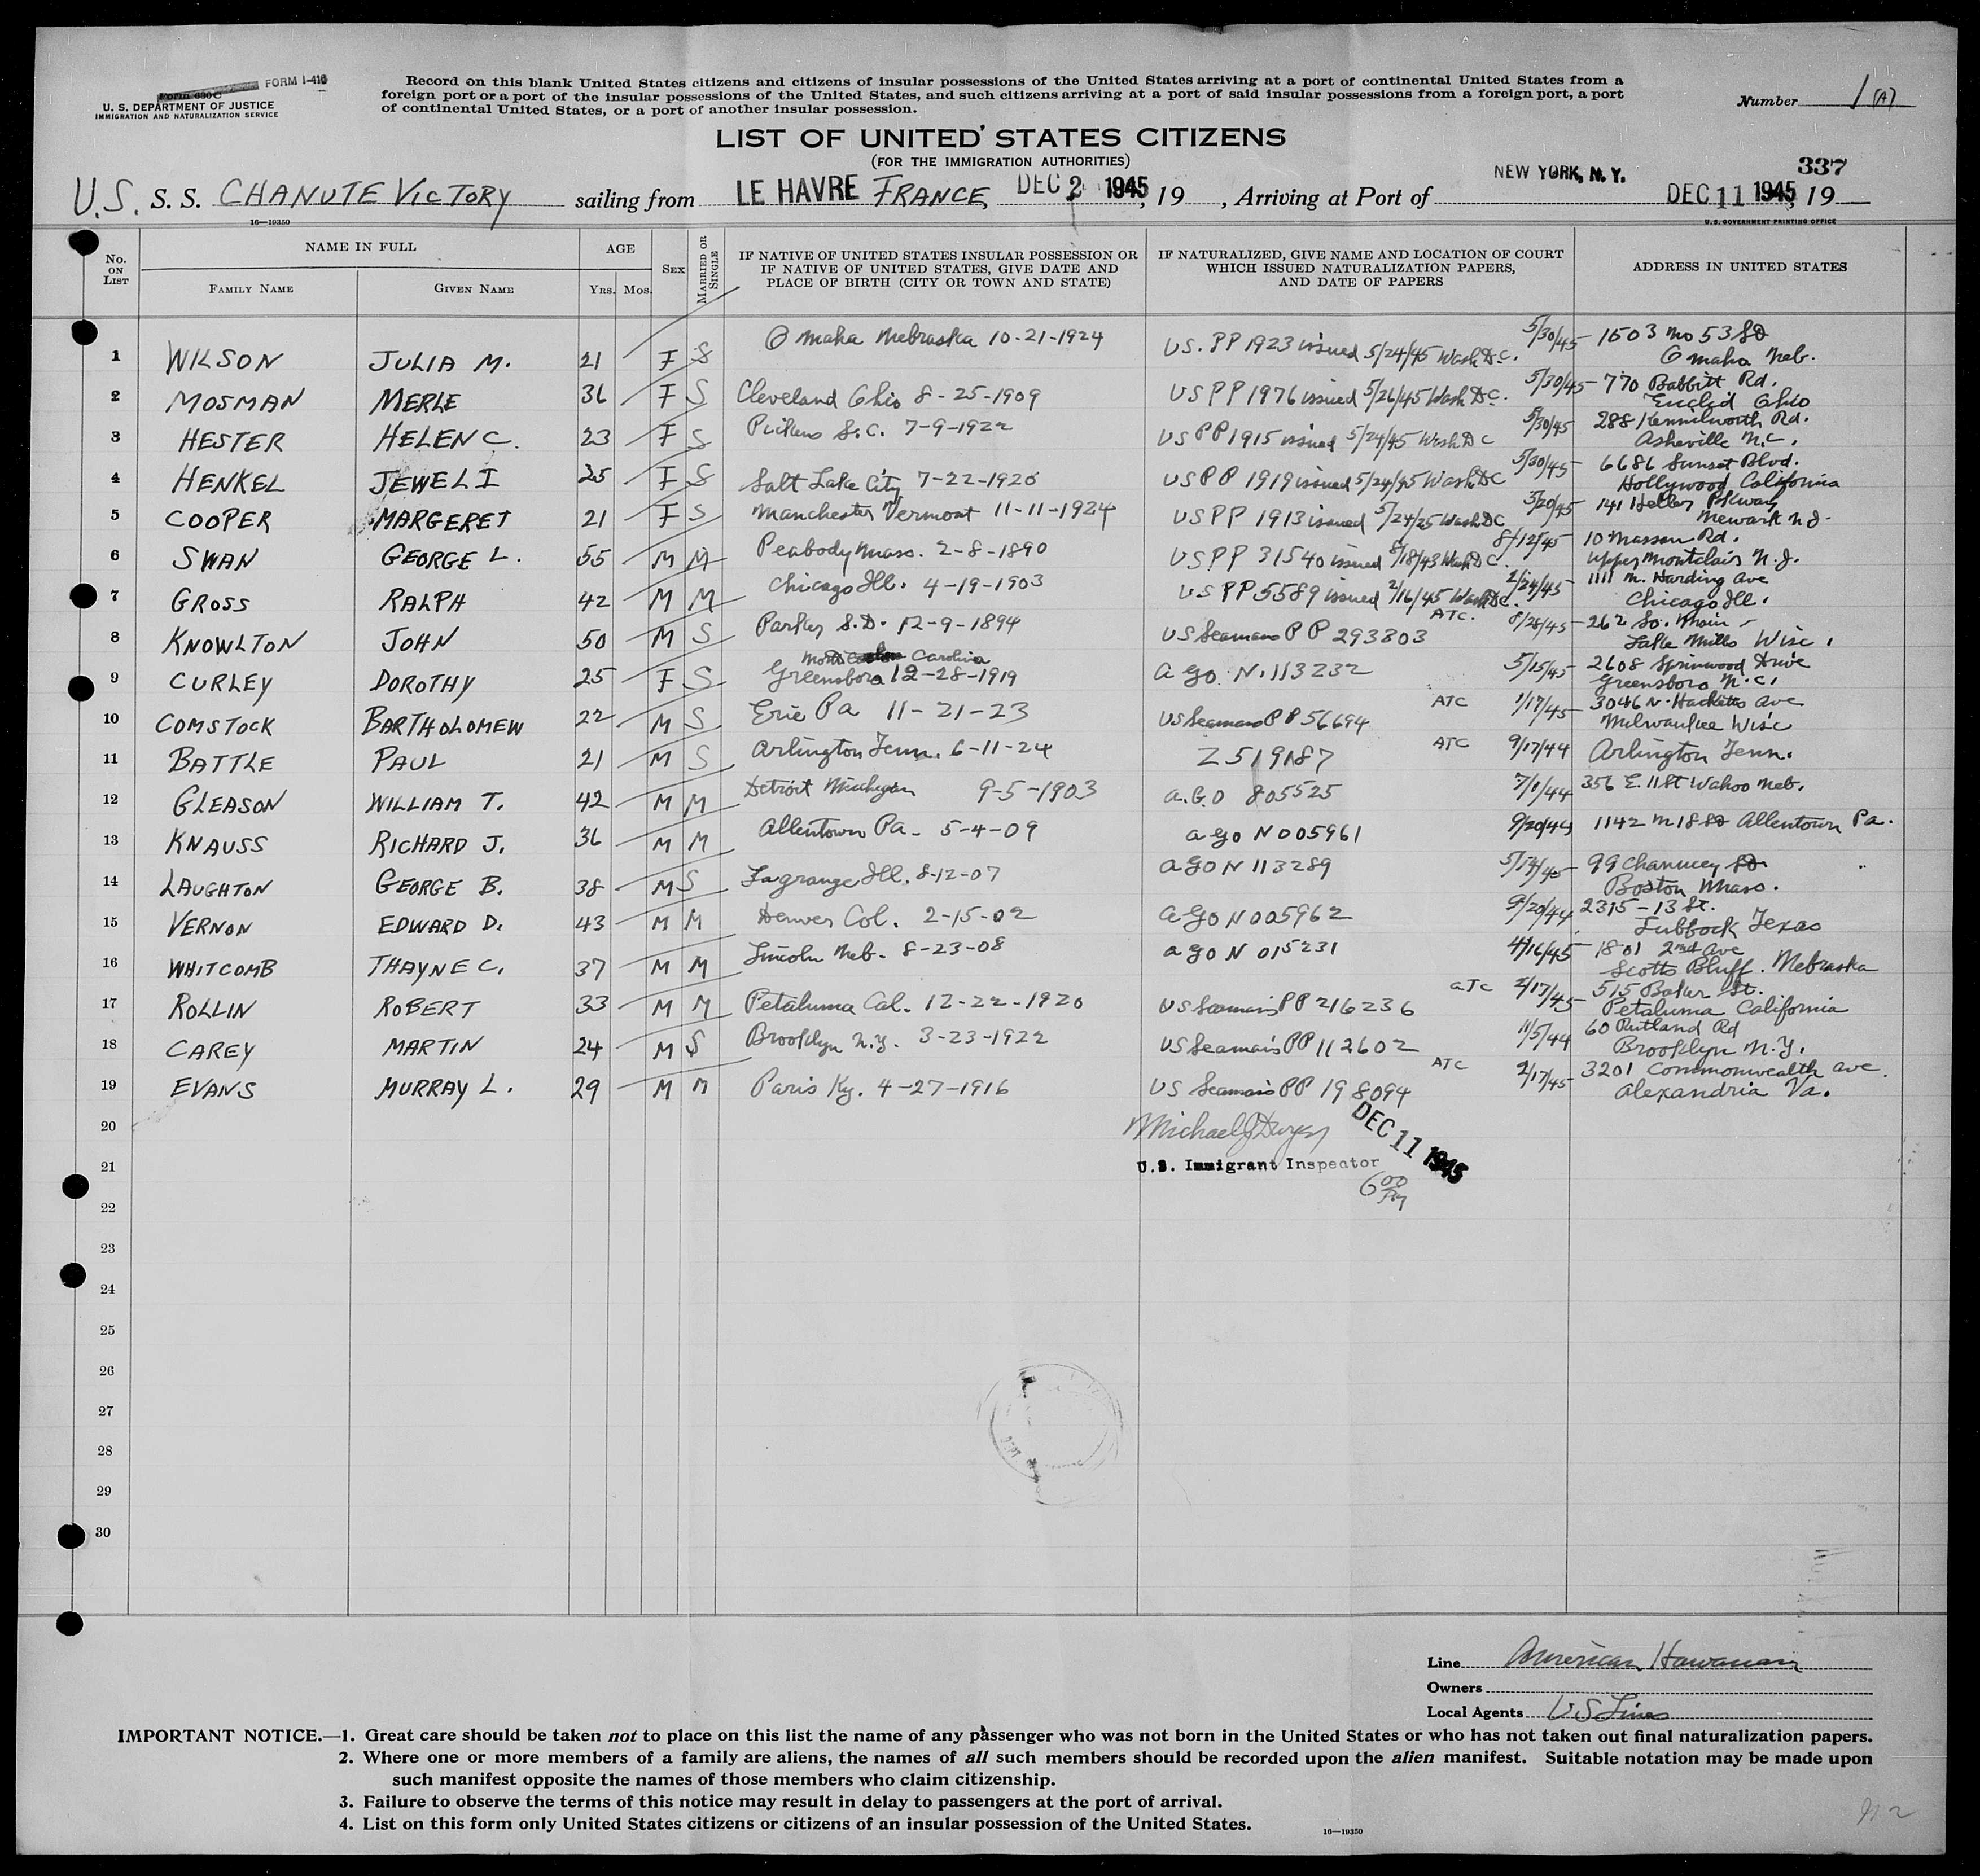 FORM I-418
Form 630 C
U. S. DEPARTMENT OF JUSTICE
IMMIGRATION AND NATURALIZATION SERVICE
Record on this blank United States citizens and citizens of insular possessions of the United States arriving at a port of continental United States from a
foreign port or a port of the insular possessions of the United States, and such citizens arriving at a port of said insular possessions from a foreign port, a port
of continental United States, or a port of another insular possession.
Number 1 (A)
LIST OF UNITED STATES CITIZENS
(FOR THE IMMIGRATION AUTHORITIES)
337
U.S. S. S. CHANUTE VICTORY sailing from LE HAVRE FRANCE, DEC 2 1945, 19 , Arriving at Port of NEW YORK, N. Y. DEC 11 1945, 19
16—19350
U. S. GOVERNMENT PRINTING OFFICE
No. ON LIST NAME IN FULL FAMILY NAME GIVEN NAME AGE YRS. MOS. SEX MARRIED OR SINGLE IF NATIVE OF UNITED STATES INSULAR POSSESSION OR IF NATIVE OF UNITED STATES, GIVE DATE AND PLACE OF BIRTH (CITY OR TOWN AND STATE) IF NATURALIZED, GIVE NAME AND LOCATION OF COURT WHICH ISSUED NATURALIZATION PAPERS, AND DATE OF PAPERS ADDRESS IN UNITED STATES
1 WILSON JULIA M. 21 F S Omaha Nebraska 10-21-1924 US. PP 1923 issued 5/24/45 Wash D.C. 5/30/45 1503 No 53 St Omaha Neb.
2 MOSMAN MERLE 36 F S Cleveland Ohio 8-25-1909 US PP 1976 issued 5/26/45 Wash DC. 5/30/45 770 Babbitt Rd. Euclid Ohio
3 HESTER HELEN C. 23 F S Pickens S.C. 7-9-1922 US PP 1915 issued 5/24/45 Wash DC 5/30/45 288 Kennilworth Rd. Asheville N.C.
4 HENKEL JEWEL I 25 F S Salt Lake City 7-22-1920 US PP 1919 issued 5/24/45 Wash DC 5/30/45 6686 Sunset Blvd. Hollywood California
5 COOPER MARGERET 21 F S Manchester Vermont 11-11-1924 US PP 1913 issued 5/24/25 Wash DC 5/20/45 141 Heller Pkway Newark N.J.
6 SWAN GEORGE L. 55 M M Peabody Mass. 2-8-1890 US PP 31540 issued 8/18/43 Wash DC. 8/12/45 10 Masson Rd. Upper Montclair N.J.
7 GROSS RALPH 42 M M Chicago Ill. 4-19-1903 US PP 5589 issued 2/16/45 Wash DC. 2/24/45 1111 N. Harding Ave Chicago Ill.
8 KNOWLTON JOHN 50 M S Parker S.D. 12-9-1894 US Seamans PP 293803 ATC. 8/28/45 262 So. Main Lake Mills Wisc.
9 CURLEY DOROTHY 25 F S North Carolina Greensboro 12-28-1919 a go N.113232 5/15/45 2608 Sprinwood Drive Greensboro N.C.
10 COMSTOCK BARTHOLOMEW 22 M S Erie Pa 11-21-23 US Seamans PP 56694 ATC 1/17/45 3046 N. Hackett Ave Milwaukee Wisc
11 BATTLE PAUL 21 M S Arlington Tenn. 6-11-24 Z 519187 ATC 9/17/44 Arlington Tenn.
12 GLEASON WILLIAM T. 42 M M Detroit Michigan 9-5-1903 a.G.O 805525 7/1/44 356 E. 11 St Wahoo Neb.
13 KNAUSS RICHARD J. 36 M M Allentown Pa. 5-4-09 a go N 005961 9/20/44 1142 N 18 St Allentown Pa.
14 LAUGHTON GEORGE B. 38 M S Lagrange Ill. 8-12-07 a go N 113289 5/17/45 99 Chauncey St Boston Mass.
15 VERNON EDWARD D. 43 M M Denver Col. 2-15-02 a go N 005962 9/20/44 2315-13 St. Lubbock Texas
16 WHITCOMB THAYNE C. 37 M M Lincoln Neb. 8-23-08 a go N 015231 4/16/45 1801 2nd Ave Scotts Bluff. Nebraska
17 ROLLIN ROBERT 33 M M Petaluma Cal. 12-22-1920 US Seaman's PP 216236 aTC 2/17/45 515 Baker St. Petaluma California
18 CAREY MARTIN 24 M S Brooklyn N.Y. 3-23-1922 US Seaman's PP 112602 11/5/44 60 Rutland Rd Brooklyn N.Y.
19 EVANS MURRAY L. 29 M M Paris Ky. 4-27-1916 US Seaman's PP 198094 ATC 2/17/45 3201 Commonwealth ave. Alexandria Va.
20
DEC 11 1945
21 U.S. Immigrant Inspector
22
23
24
25
26
27
28
29
30
Line American Hawaiian
Owners
Local Agents US Lines
IMPORTANT NOTICE.—1. Great care should be taken not to place on this list the name of any passenger who was not born in the United States or who has not taken out final naturalization papers.
2. Where one or more members of a family are aliens, the names of all such members should be recorded upon the alien manifest. Suitable notation may be made upon
such manifest opposite the names of those members who claim citizenship.
3. Failure to observe the terms of this notice may result in delay to passengers at the port of arrival.
4. List on this form only United States citizens or citizens of an insular possession of the United States.
16—19350